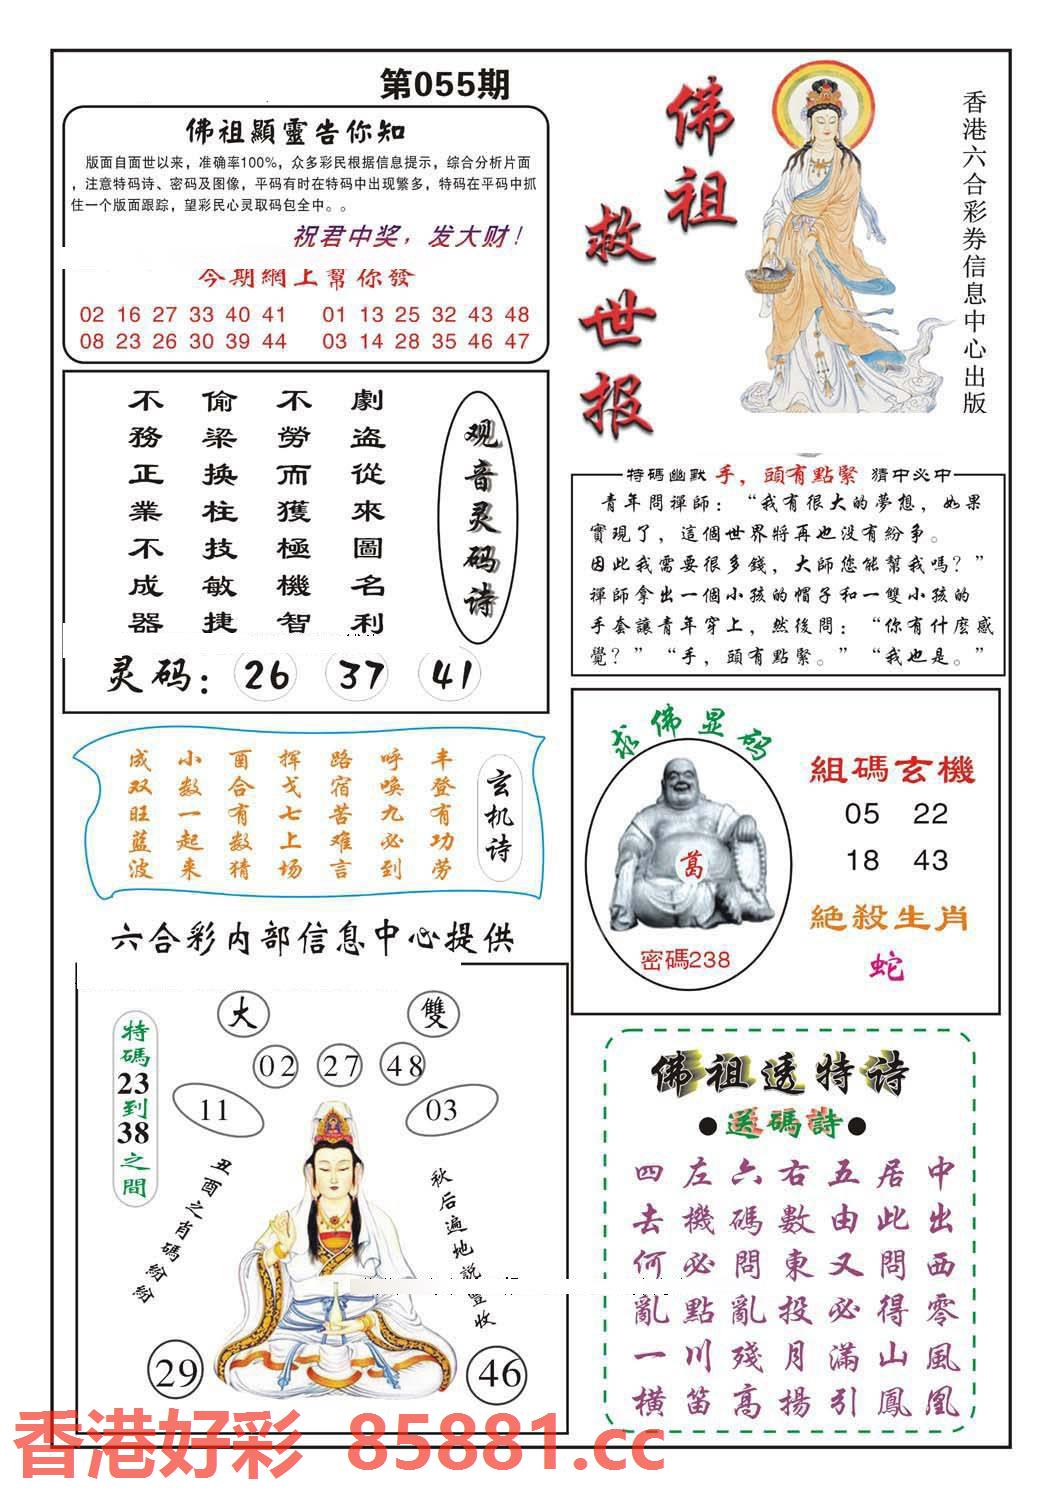 第055期
佛祖顯靈告你知
版面自面世以来，准确率100%，众多彩民根据信息提示，综合分析片面
，注意特码诗、密码及图像，平码有时在特码中出现繁多，特码在平码中抓
住一个版面跟踪，望彩民心灵取码包全中。。
祝君中奖，发大财！
今期網上幫你發
02 16 27 33 40 41 01 13 25 32 43 48
08 23 26 30 39 44 03 14 28 35 46 47
佛祖
救世报
香港六合彩券信息中心出版
观音灵码诗
劇盗從來圖名利
不勞而獲極機智
偷梁换柱技敏捷
不務正業不成器
灵码：26 37 41
特碼幽默 手，頭有點緊 猜中必中
青年問禪師：“我有很大的夢想，如果
實現了，這個世界將再也没有紛争。
因此我需要很多錢，大師您能幫我嗎？”
禪師拿出一個小孩的帽子和一雙小孩的
手套讓青年穿上，然後問：“你有什麽感
覺？”“手，頭有點緊。”“我也是。”
玄机诗
丰登有功劳
呼唤九必到
路宿苦难言
挥戈七上场
酉合有数猜
小数一起来
成双旺蓝波
求佛显码
萬
密碼238
組碼玄機
05 22
18 43
絶殺生肖
蛇
六合彩内部信息中心提供
大 雙
02 27 48
11 03
特碼23到38之間
丑酉之肖碼紛紛
秋后遍地説豐收
29 46
佛祖透特诗
●送碼詩●
中出西零風凰
居此問得山鳳
五由又必滿引
右數東投月揚
六碼問亂殘高
左機必點川笛
四去何亂一横
香港好彩 85881.cc